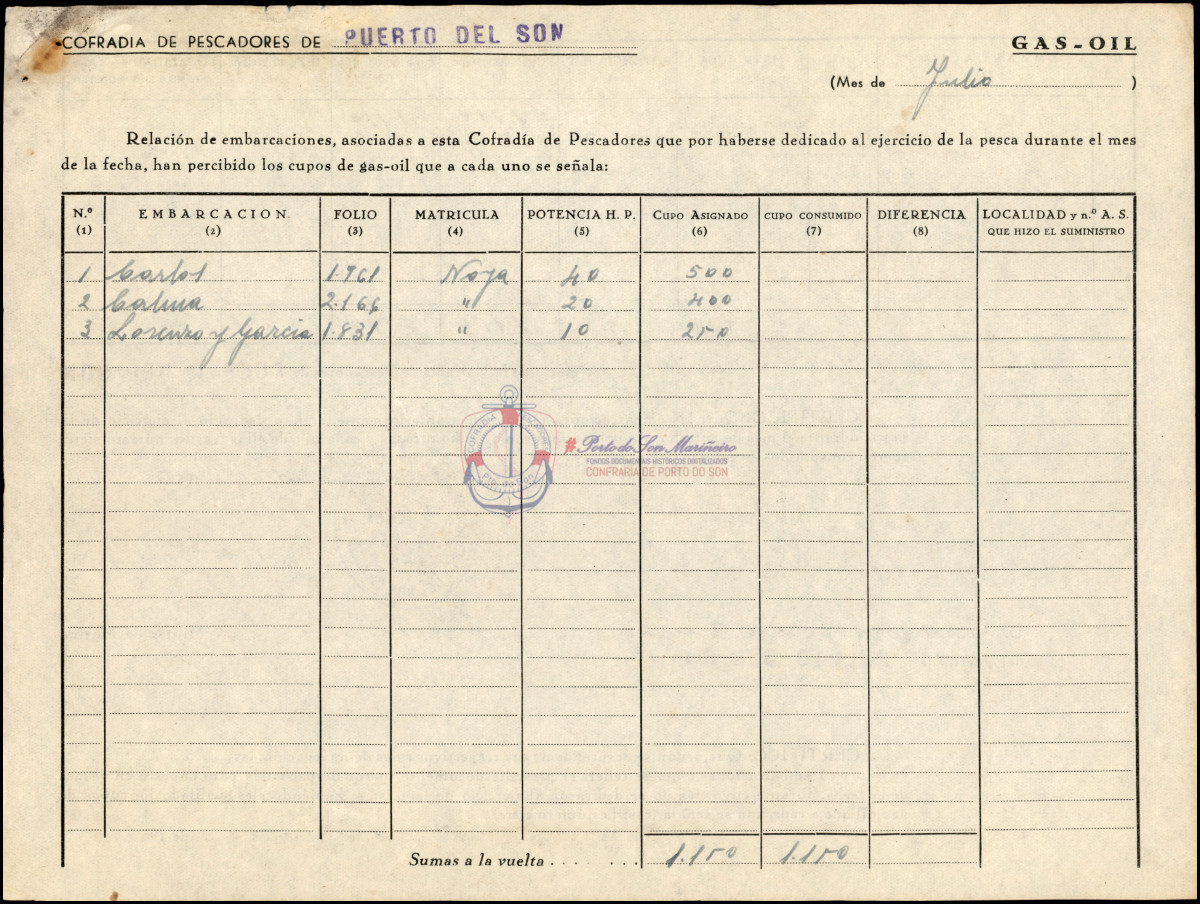 COFRADIA DE PESCADORES DE PUERTO DEL SON
GAS-OIL
(Mes de Julio)
Relación de embarcaciones, asociadas a esta Cofradía de Pescadores que por haberse dedicado al ejercicio de la pesca durante el mes
de la fecha, han percibido los cupos de gas-oil que a cada uno se señala:
N.º EMBARCACION FOLIO MATRICULA POTENCIA H. P. CUPO ASIGNADO CUPO CONSUMIDO DIFERENCIA LOCALIDAD y n.º A. S.
(1) (2) (3) (4) (5) (6) (7) (8) QUE HIZO EL SUMINISTRO
1 Carlos 1.761 Noya 40 500
2 Calma 2.166 " 20 400
3 Lorenzo y Garcia 1.831 " 10 250
COFRADIA PESCADORES
Pto. do Son
#Porto do Son Mariñeiro
FONDOS DOCUMENTAIS HISTÓRICOS DIGITALIZADOS
CONFRARÍA DE PORTO DO SON
Sumas a la vuelta . . . . . . . 1.150 1.150